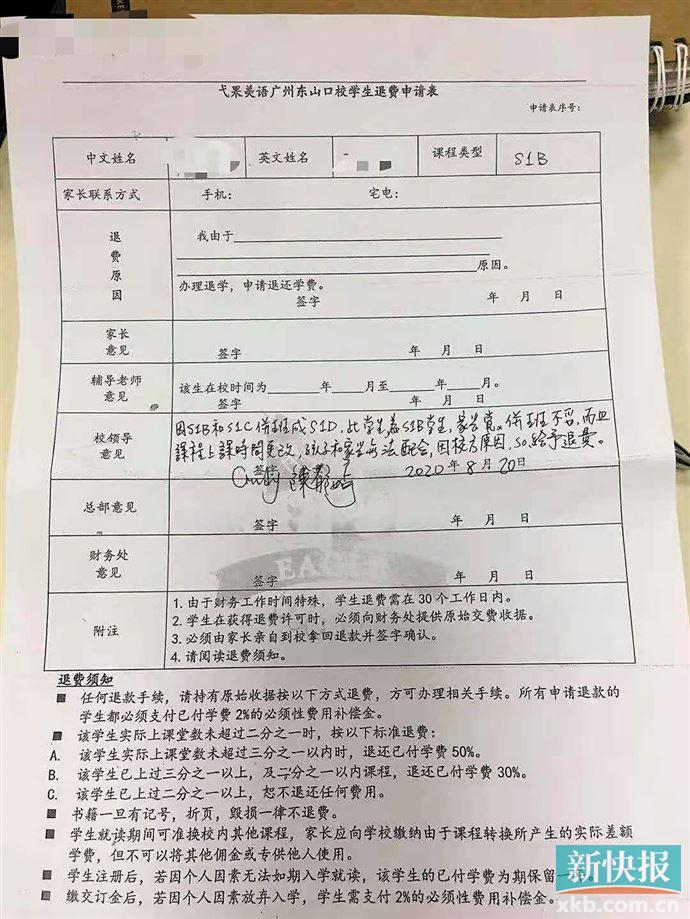 弋果美语广州东山口校学生退费申请表
申请表序号：
中文姓名 英文姓名 课程类型 S1B
家长联系方式 手机： 宅电：
退费原因
我由于
原因。
办理退学，申请退还学费。
签字 年 月 日
家长意见
签字 年 月 日
辅导老师意见
该生在校时间为 年 月至 年 月。
签字 年 月 日
校领导意见
因S1B和S1C併班成S1D，此学生為S1B学生，家長 併班不 ，而且
課程上課時間更改，孩子和家長無法配合，因校方原因，so給予退費。
签字 2020年8月20日
总部意见
签字 年 月 日
财务处意见
签字 年 月 日
EAGLE
附注
1. 由于财务工作时间特殊，学生退费需在30个工作日内。
2. 学生在获得退费许可时，必须向财务处提供原始交费收据。
3. 必须由家长亲自到校拿回退款并签字确认。
4. 请阅读退费须知。
退费须知
■ 任何退款手续，请持有原始收据按以下方式退费，方可办理相关手续。所有申请退款的
学生都必须支付已付学费2%的必须性费用补偿金。
■ 该学生实际上课堂数未超过二分之一时，按以下标准退费：
A. 该学生实际上课堂数未超过三分之一以内时，退还已付学费50%。
B. 该学生已上过三分之一以上，及二分之一以内课程，退还已付学费30%。
C. 该学生已上过二分之一以上，恕不退还任何费用。
■ 书籍一旦有记号，折页，毁损一律不退费。
■ 学生就读期间可准换校内其他课程，家长应向学校缴纳由于课程转换所产生的实际差额
学费，但不可以将其他佣金或专供他人使用。
■ 学生注册后，若因个人因素无法如期入学就读，该学生的已付学费为期保留一年。
■ 缴交订金后，若因个人因素放弃入学，学生需支付2%的必须性费用补偿金。
新快报
xkb.com.cn